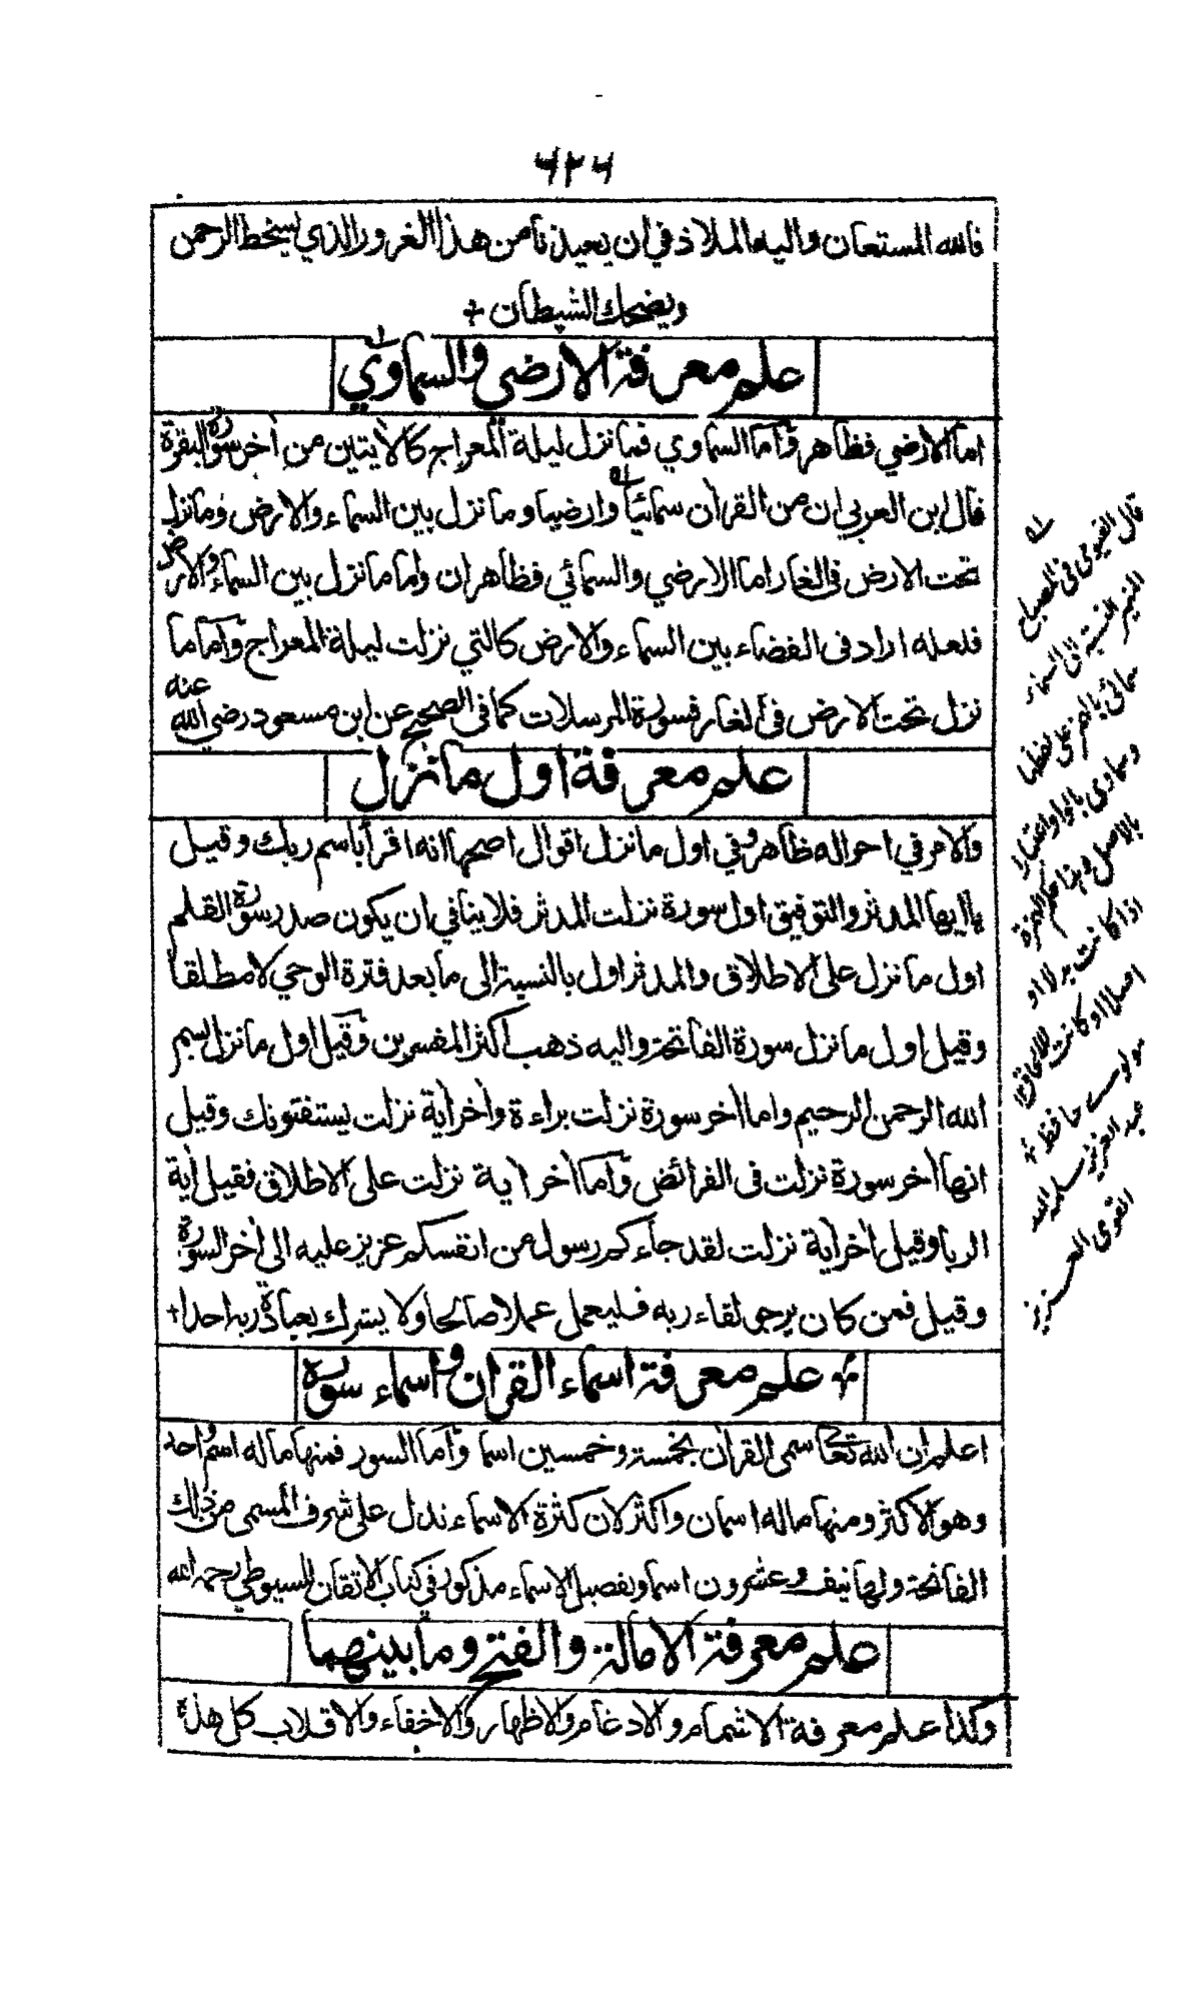 ٦٢٦
فالله المستعان واليه الملاذ في ان يعيذنا من هذا الغرور الذي يسخط الرحمن
ويضحك الشيطان +
علم معرفة الارضي والسماوي
اما الارضي فظاهر واما السماوي فما نزل ليلة المعراج كالايتين من اخر سورة البقرة
قال ابن العربي ان من القران سمائيا وارضيا وما نزل بين السماء والارض وما نزل
تحت الارض في الغار اما الارضي والسمائي فظاهران واما ما نزل بين السماء والارض
فلعله اراد في الفضاء بين السماء والارض كالتي نزلت ليلة المعراج واما ما
نزل تحت الارض في الغار فسورة المرسلات كما في الصحيح عن ابن مسعود رضي الله عنه
علم معرفة اول ما نزل
والامر في احواله ظاهر وفي اول ما نزل اقوال اصحها انه اقرأ باسم ربك وقيل
يا ايها المدثر والتوفيق اول سورة نزلت المدثر فلا ينافي ان يكون صدر سورة القلم
اول ما نزل على الاطلاق والمدثر اول بالنسبة الى ما بعد فترة الوحي لا مطلقا
وقيل اول ما نزل سورة الفاتحة واليه ذهب اكثر المفسرين وقيل اول ما نزل بسم
الله الرحمن الرحيم واما اخر سورة نزلت براءة واخر اية نزلت يستفتونك وقيل
انها اخر سورة نزلت في الفرائض واما اخر اية نزلت على الاطلاق فقيل اية
الربا وقيل اخر اية نزلت لقد جاءكم رسول من انفسكم عزيز عليه الى اخر السورة
وقيل فمن كان يرجى لقاء ربه فليعمل عملا صالحا ولا يشرك بعبادة ربه احدا +
علم معرفة اسماء القران واسماء سوره
اعلم ان الله تعالى سمى القران بخمسة وخمسين اسما واما السور فمنها ماله اسم واحد
وهو الاكثر ومنها ماله اسمان واكثر لان كثرة الاسماء تدل على شرف المسمى من ذلك
الفاتحة ولها نيف وعشرون اسما وتفصيل الاسماء مذكور في كتاب الاتقان للسيوطي رحمه الله
علم معرفة الامالة والفتح وما بينهما
وكذا علم معرفة الاشمام والادغام والاظهار والاخفاء والاقلاب كل هذه
قال الفيومي في المصباح
المنير النسبة الى السماء
سمائي بالهمز على لفظها
وسماوي بالواو اعتبارا
بالاصل وهذا حكم الهمزة
اذا كانت بدلا او
اصلا او كانت للالحاق
مولوي حافظ
عبد العزيز سلمه الله
القوي العزيز